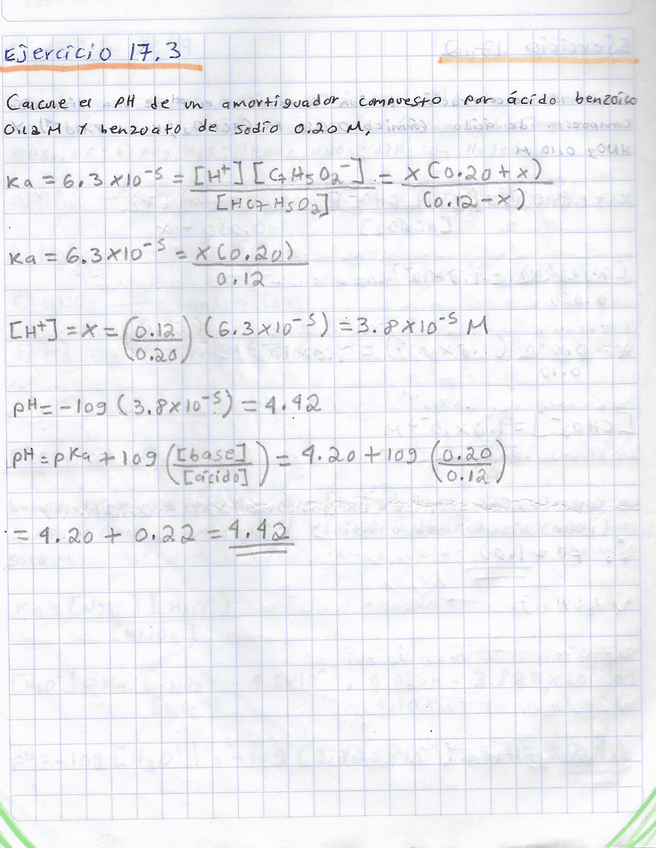 Ejercicio 17.3
Calcule el pH de un amortiguador compuesto por ácido benzoico
0.12 M y benzoato de sodio 0.20 M.
Ka = 6.3x10⁻⁵ = [H⁺] [C7H5O2⁻] / [HC7H5O2] = x(0.20+x) / (0.12-x)
Ka = 6.3x10⁻⁵ = x(0.20) / 0.12
[H⁺] = x = (0.12 / 0.20) (6.3x10⁻⁵) = 3.8x10⁻⁵ M
pH = -log (3.8x10⁻⁵) = 4.42
pH = pKa + log ([base] / [ácido]) = 4.20 + log (0.20 / 0.12)
= 4.20 + 0.22 = 4.42